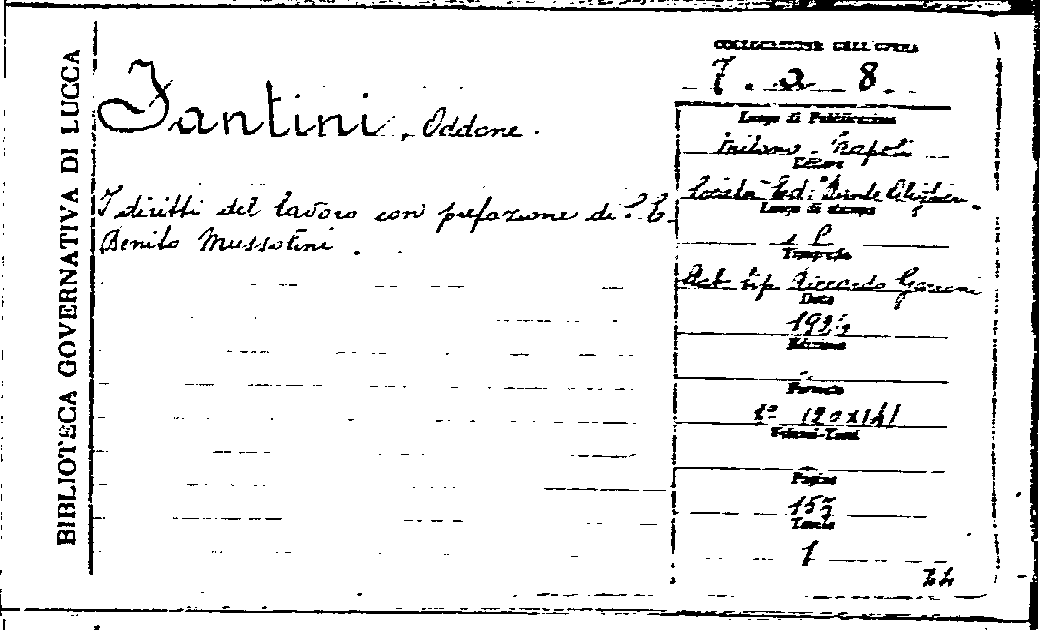 BIBLIOTECA GOVERNATIVA DI LUCCA
Fantini, Oddone.
I diritti del lavoro con prefazione di S. E.
Benito Mussolini.
COLLOCAZIONE DELL'OPERA
7. 2 8.
Luogo di Pubblicazione
Milano - Napoli
Editore
Società Ed: Dante Alighieri
Luogo di stampa
s l
Tipografo
Stab. tip. Riccardo
Data
Edizione
Formato
Volumi-Tomi
Pagine
157
Tavole
1